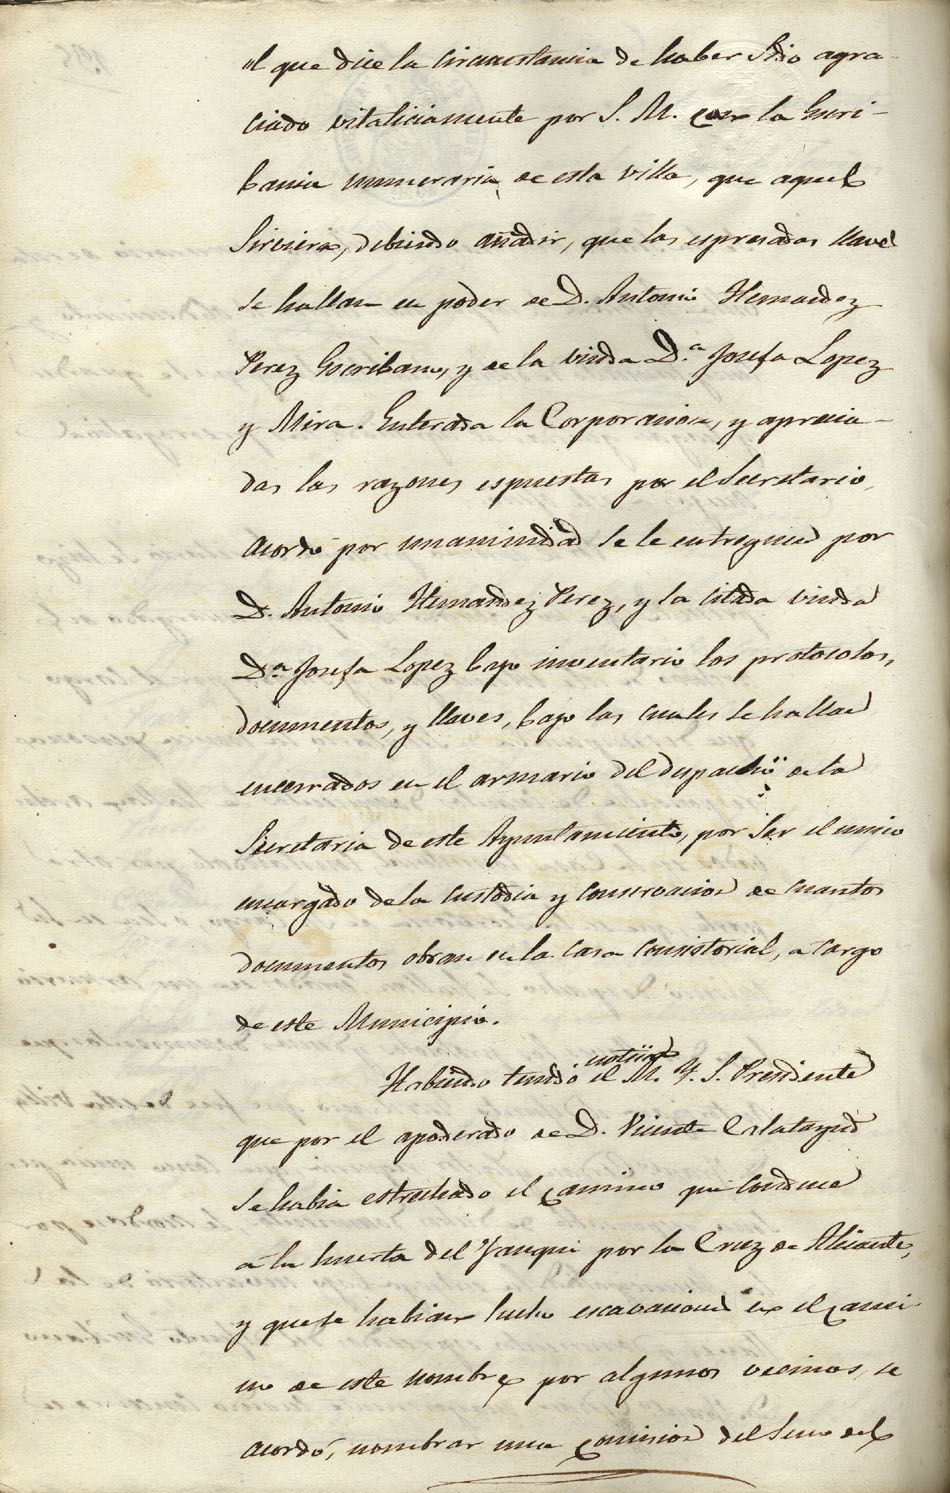 el que dice la circunstancia de haber sido agra-
ciado vitaliciamente por S. M. con la Escri-
bania numeraria de esta villa, que aquel
sirviera, debiendo añadir, que las espresadas llaves
se hallan en poder de D. Antonio Hernandez
Perez Escribano, y de la viuda D.ª Josefa Lopez
y Mira. Enterada la Corporacion, y aprecia-
das las razones espuestas por el Secretario,
acordó por unanimidad se le entreguen por
D. Antonio Hernandez Perez, y la citada viuda
D.ª Josefa Lopez bajo inventario los protocolos,
documentos, y llaves, bajo las cuales se hallan
encerrados en el armario del despacho de la
Secretaria de este Ayuntamiento, por ser el unico
encargado de la custodia y conservacion de cuantos
documentos obran en la casa consistorial, a cargo
de este Municipio.
noticia
Habiendo tenido el M. Y. S. Presidente
que por el apoderado de D. Vicente Calatayud
se habia estrechado el camino que conduce
á la huerta del por la Cruz de Alicante,
y que se habian hecho escavaciones en el cami
no de este nombre por algunos vecinos, se
acordó, nombrar una comision del seno del